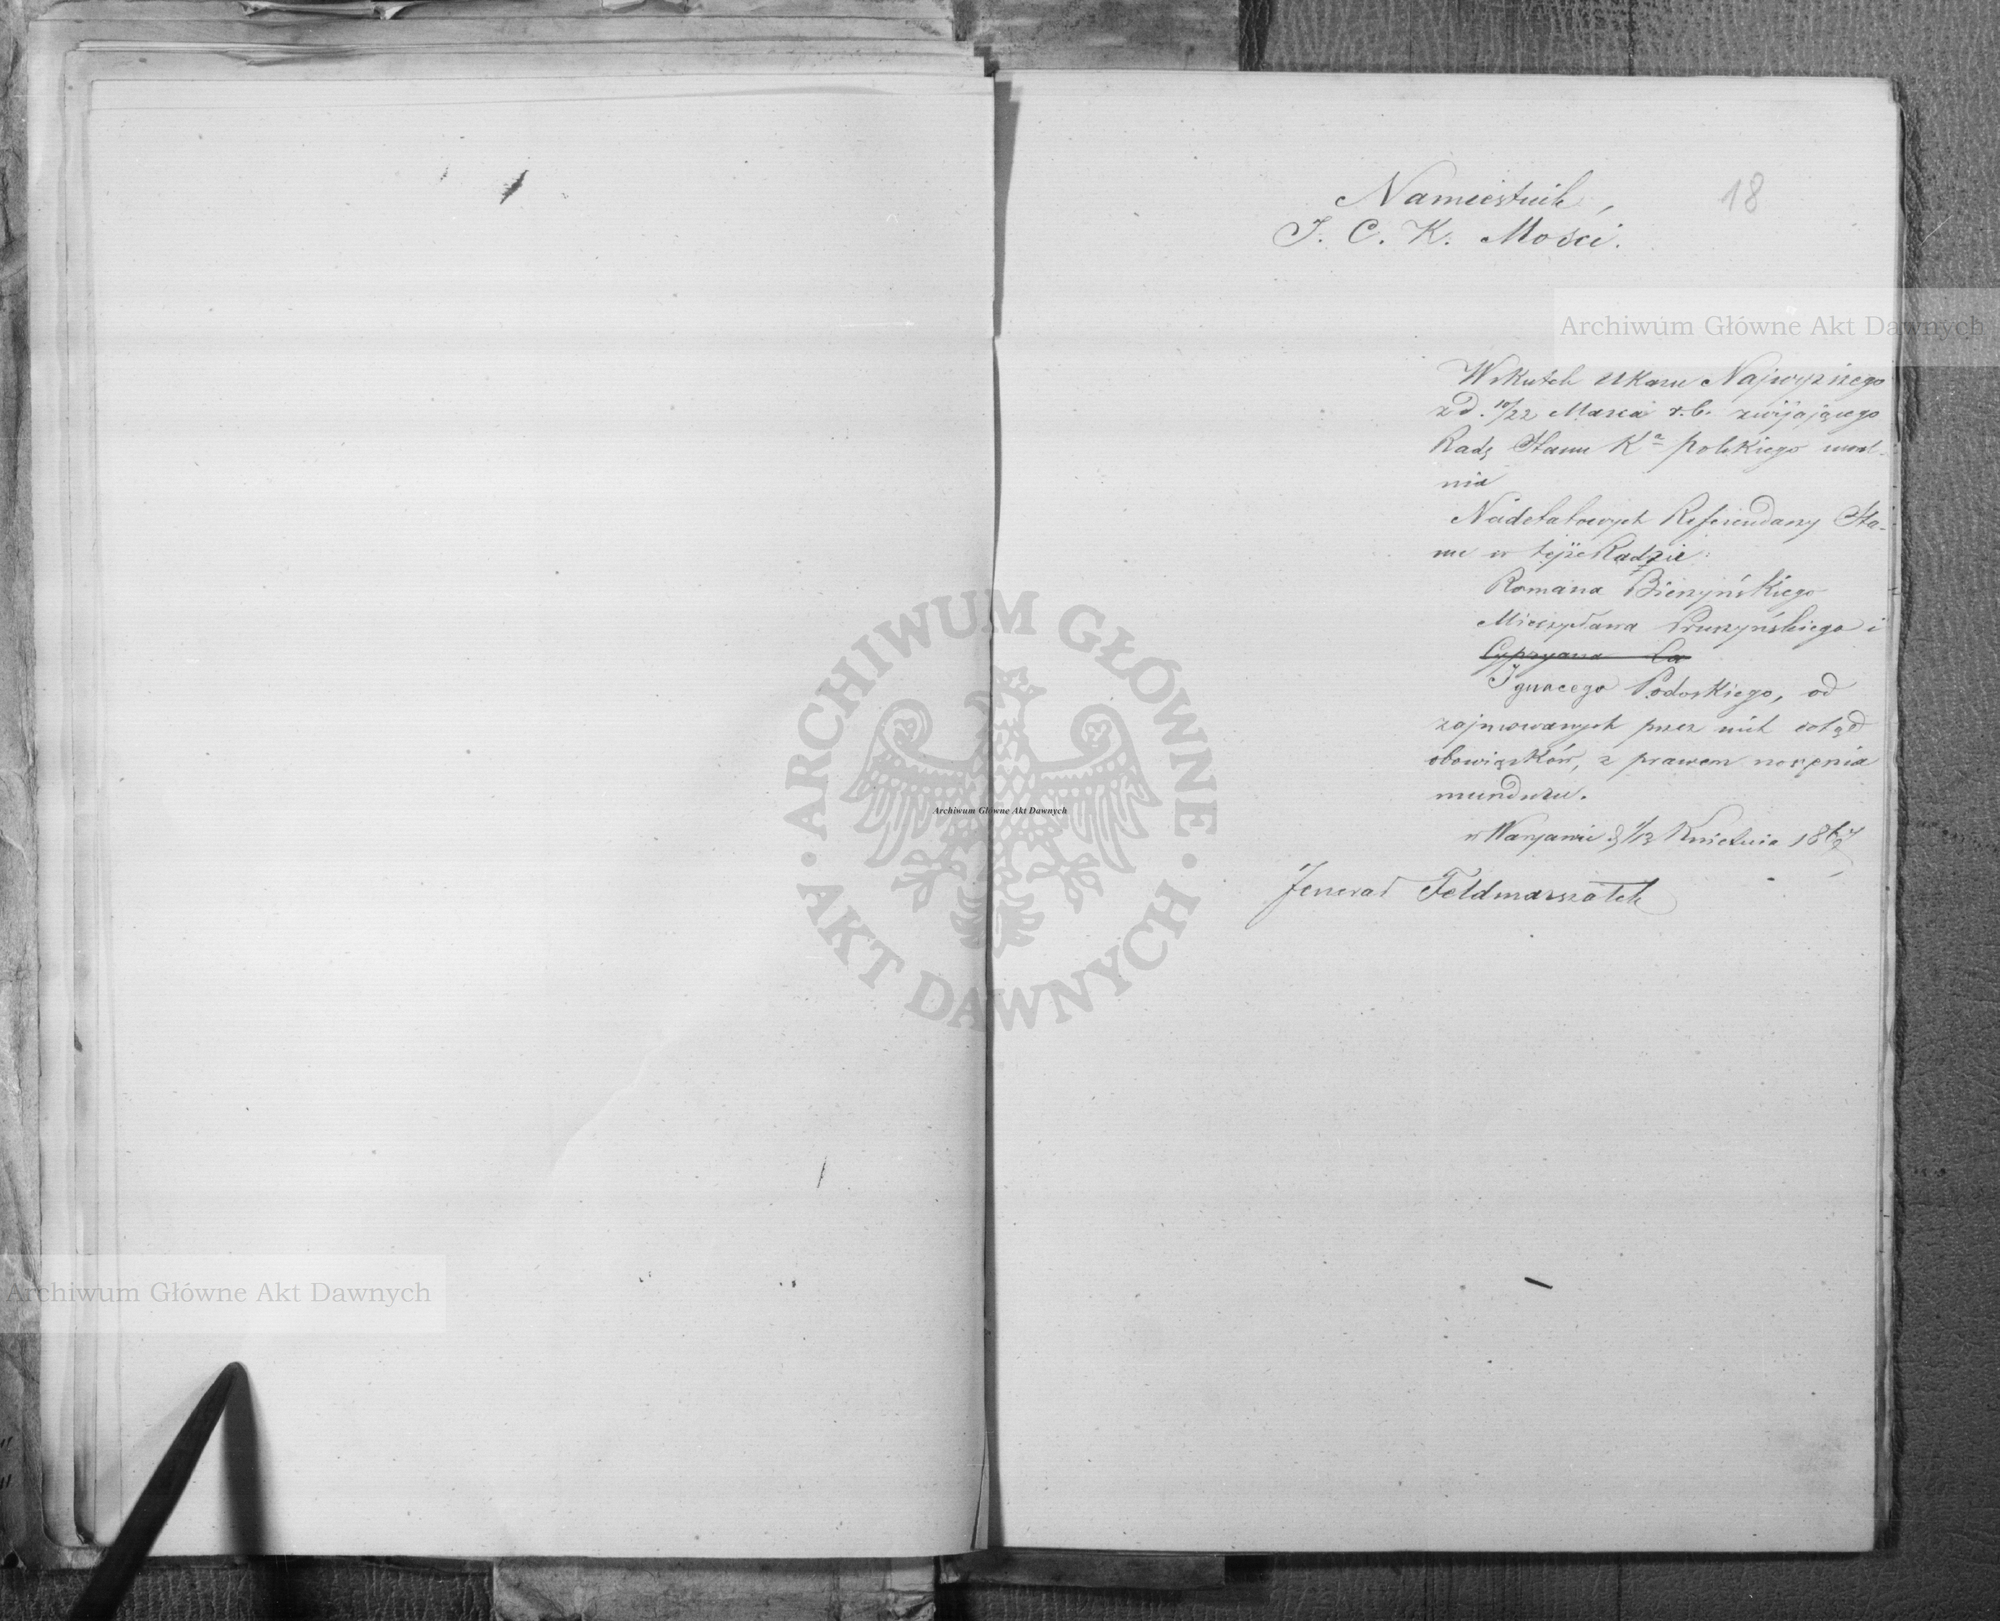 18
Namiestnik
J. C. K. Mości.
Wskutek Ukazu Najwyższego
z d. 10/22 Marca r.b. zwijającego
Radę Stanu Ka polskiego uwal-
nia
Nadetatowych Referendarzy Sta-
nu w tejże Radzie:
Romana Bierzyńskiego
Mieczysława Pruszyńskiego i
Cypryana La
Ignacego Podoskiego, od
zajmowanych przez nich dotąd
obowiązków, z prawem noszenia
munduru.
w Warszawie d 1/13 Kwietnia 1867
Jenerał Feldmarszałek
Archiwum Główne Akt Dawnych
ARCHIWUM GŁÓWNE
AKT DAWNYCH
Archiwum Główne Akt Dawnych
Archiwum Główne Akt Dawnych